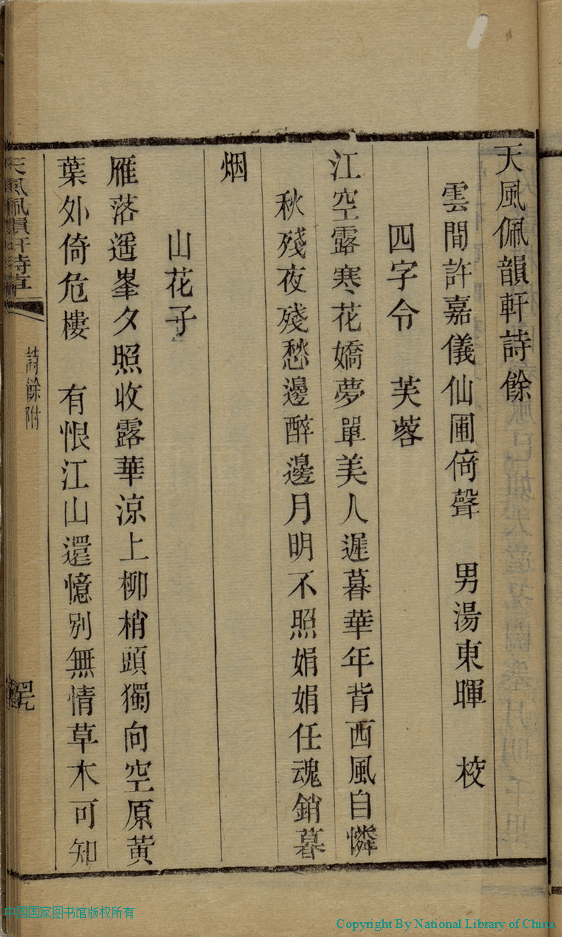 天風佩韻軒詩餘
雲間許嘉儀仙圃倚聲　男湯東暉　校
四字令　芙蓉
江空露寒花嬌夢單美人遲暮華年背西風自憐
秋殘夜殘愁邊醉邊月明不照娟娟任魂銷暮
烟
山花子
雁落遥峯夕照收露華涼上柳梢頭獨向空原黃
葉外倚危樓　有恨江山還憶別無情草木可知
天風佩韻軒詩草
詩餘附
中国国家图书馆版权所有
Copyright By National Library of China